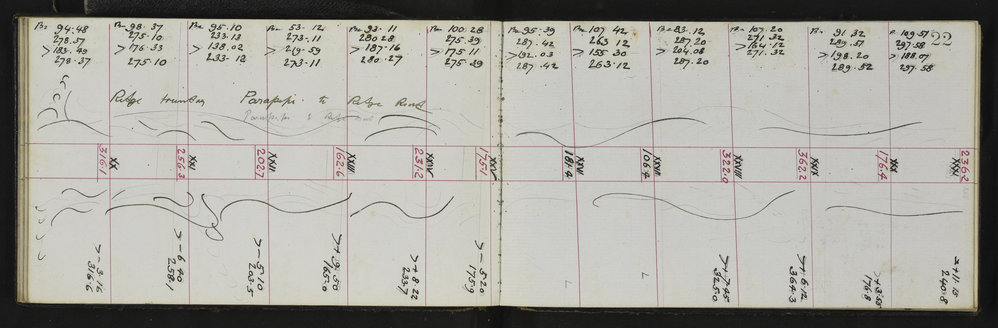 Bn 94·48
278·57
> 183·49
278·37
Bn 98·37
275·10
> 176·33
275·10
Bn 95·10
233·13
> 138·02
233·12
Bn 53·12
273·11
> 219·59
273·11
Bn 93·11
280·28
> 187·16
280·27
Bn 100·28
275·39
> 175·11
275·39
Bn 95·39
287·42
> 192·03
287·42
Bn 107·42
263·12
> 155·30
263·12
Bn 83·12
287·20
> 204·08
287·20
Bn 107·20
271·32
> 164·12
271·32
Bn 91·32
289·51
> 198·20
289·52
109·51
297·58
> 188·07
297·58
22
Ridge Parapapa to Ridge Road
Parapapa to Ridge Road
XX
316·1
XXI
256·3
XXII
202·7
XXIII
162·6
XXIV
231·2
XXV
175·1
181·4
106·4
XXVIII
322·0
362·2
XXX
176·4
XXXI
236·2
> − 3·16
316·6
> − 6·40
258·1
> − 5·10
203·5
> + 9·50
165·0
> + 8·22
233·7
> − 5·20
175·9
> + 7·45
325·0
> + 6·12
364·3
> + 3·55
176·8
+ 11·15
240·8